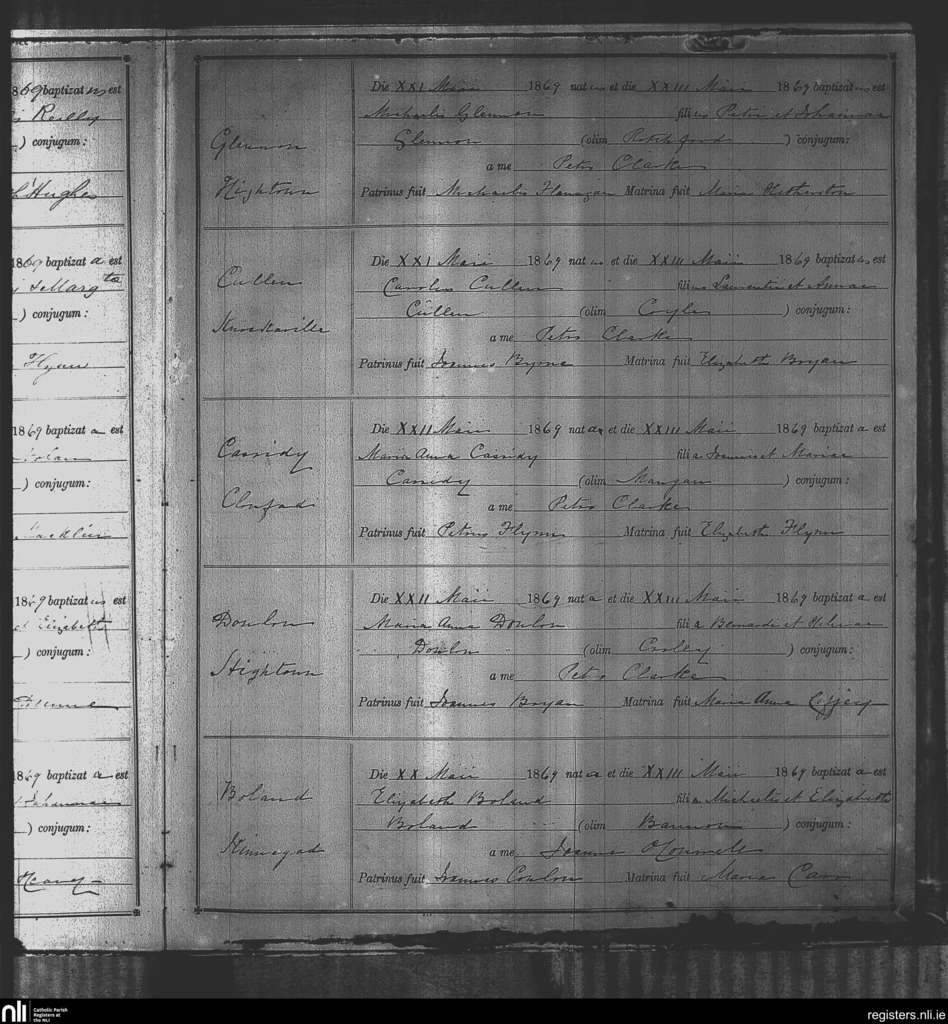 1869 baptizat us est
Reilly
) conjugum:
Hughes
1869 baptizat a est
Marg ta
) conjugum:
Flynn
1869 baptizat a est
) conjugum:
1869 baptizat us est
et Elizabeth
) conjugum:
1869 baptizat a est
) conjugum:
Die XXI Maii 1869 nat us et die XXIII Maii 1869 baptizat us est
Michaelis Glennon fili us Petri et Johannae
Glennon
Glennon (olim Rotchford ) conjugum:
a me Petro Clarke
Hightown
Patrinus fuit Michaelis Flanagan Matrina fuit Maria Hetherston
Die XXI Maii 1869 nat us et die XXIII Maii 1869 baptizat us est
Cullen
Carolus Cullen fili us Laurentii et Annae
Cullen (olim Coyle ) conjugum:
a me Petro Clarke
Patrinus fuit Joannes Byrne Matrina fuit Elizabeth Bryan
Die XXII Maii 1869 nat a et die XXIII Maii 1869 baptizat a est
Cassidy
Maria Anna Cassidy fili a Joannis et Mariae
Cassidy (olim Mangan ) conjugum:
a me Petro Clarke
Patrinus fuit Petrus Flynn Matrina fuit Elizabeth Flynn
Die XXII Maii 1869 nat a et die XXIII Maii 1869 baptizat a est
Donlon
Maria Anna Donlon fili a Bernardi et Helenae
Donlon (olim Crolly ) conjugum:
Hightown
a me Petro Clarke
Patrinus fuit Joannes Bryan Matrina fuit Maria Anna
Die XX Maii 1869 nat a et die XXIII Maii 1869 baptizat a est
Boland
Elizabeth Boland fili a Michaelis et Elizabeth
Boland (olim Bannon ) conjugum:
Kinnegad
a me Joanne OConnell
Patrinus fuit Joannes Conlon Matrina fuit Maria Carr
nli
Catholic Parish
Registers at the
NLI
registers.nli.ie